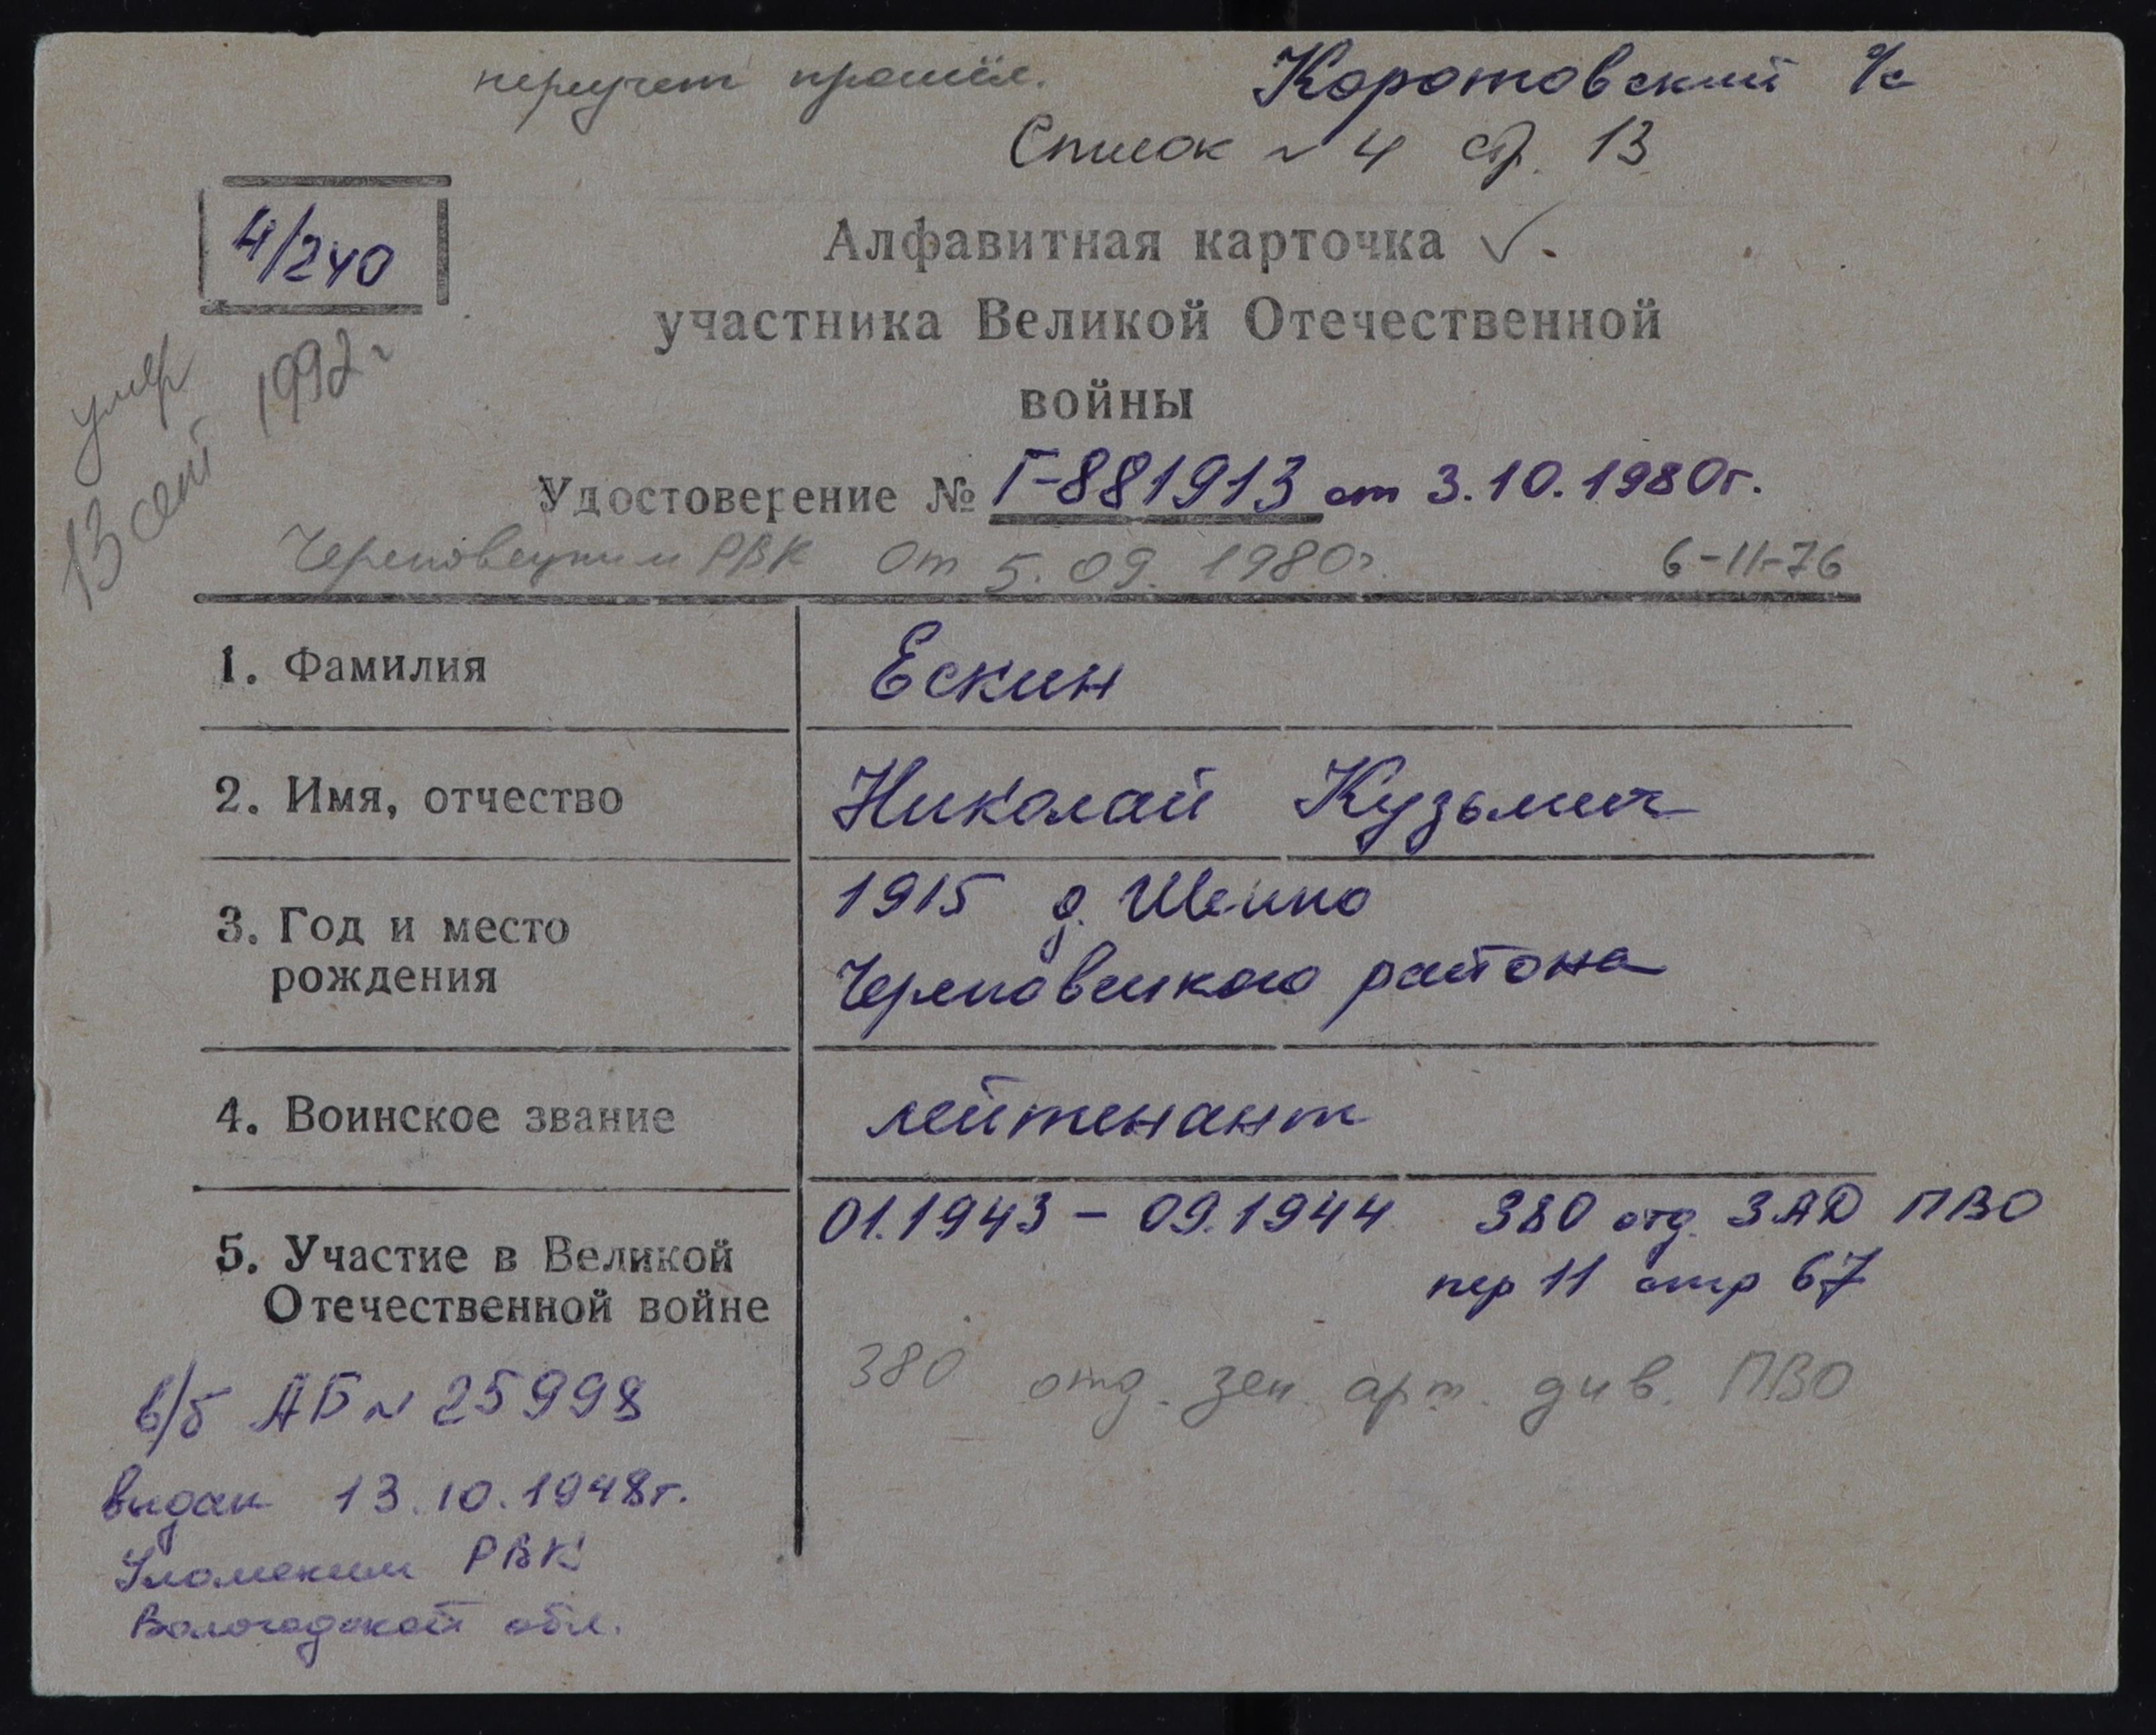 переучет прошёл.
Коротовский с/с
Список № 4 стр. 13
4/240
Алфавитная карточка ✓.
участника Великой Отечественной
войны
умер
13 сент 1992 г
Удостоверение № Г-881913 от 3.10.1980г.
Череповецким РВК от 5.09.1980г. 6-11-76
1. Фамилия
Ескин
2. Имя, отчество
Николай Кузьмич
3. Год и место
рождения
1915 д.
Череповецкого района
4. Воинское звание
лейтенант
5. Участие в Великой
Отечественной войне
01.1943 - 09.1944 380 отд. ЗАД ПВО
пер 11 стр 67
380 отд. зен. арт. див. ПВО
в/б АБ № 25998
выдан 13.10.1948г.
Уломским РВК
Вологодской обл.